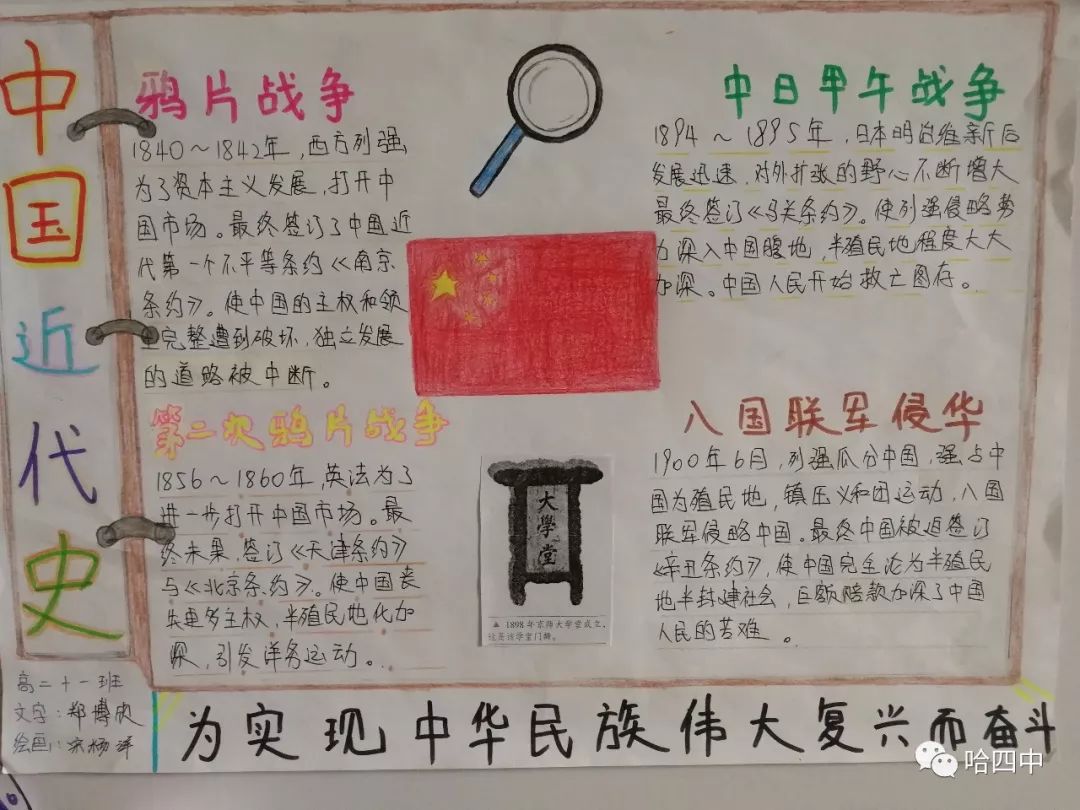 中国近代史
鸦片战争
1840～1842年，西方列强
为了资本主义发展，打开中
国市场。最终签订了中国近
代第一个不平等条约《南京
条约》。使中国的主权和领
土完整遭到破坏，独立发展
的道路被中断。
第二次鸦片战争
1856～1860年，英法为了
进一步打开中国市场。最
终未果，签订《天津条约》
与《北京条约》。使中国丧
失更多主权，半殖民地化加
深，引发洋务运动。
中日甲午战争
1894～1895年，日本明治维新后
发展迅速，对外扩张的野心不断增大
最终签订《马关条约》。使列强侵略势
力深入中国腹地，半殖民地程度大大
加深。中国人民开始救亡图存。
八国联军侵华
1900年6月，列强瓜分中国，强占中
国为殖民地，镇压义和团运动，八国
联军侵略中国。最终中国被迫签订
《辛丑条约》，使中国完全沦为半殖民
地半封建社会，巨额赔款加深了中国
人民的苦难。
大學堂
▲ 1898年京师大学堂成立。
这是该学堂门额。
高二十一班
文字：郑博欣
绘画：宋杨洋
为实现中华民族伟大复兴而奋斗
哈四中